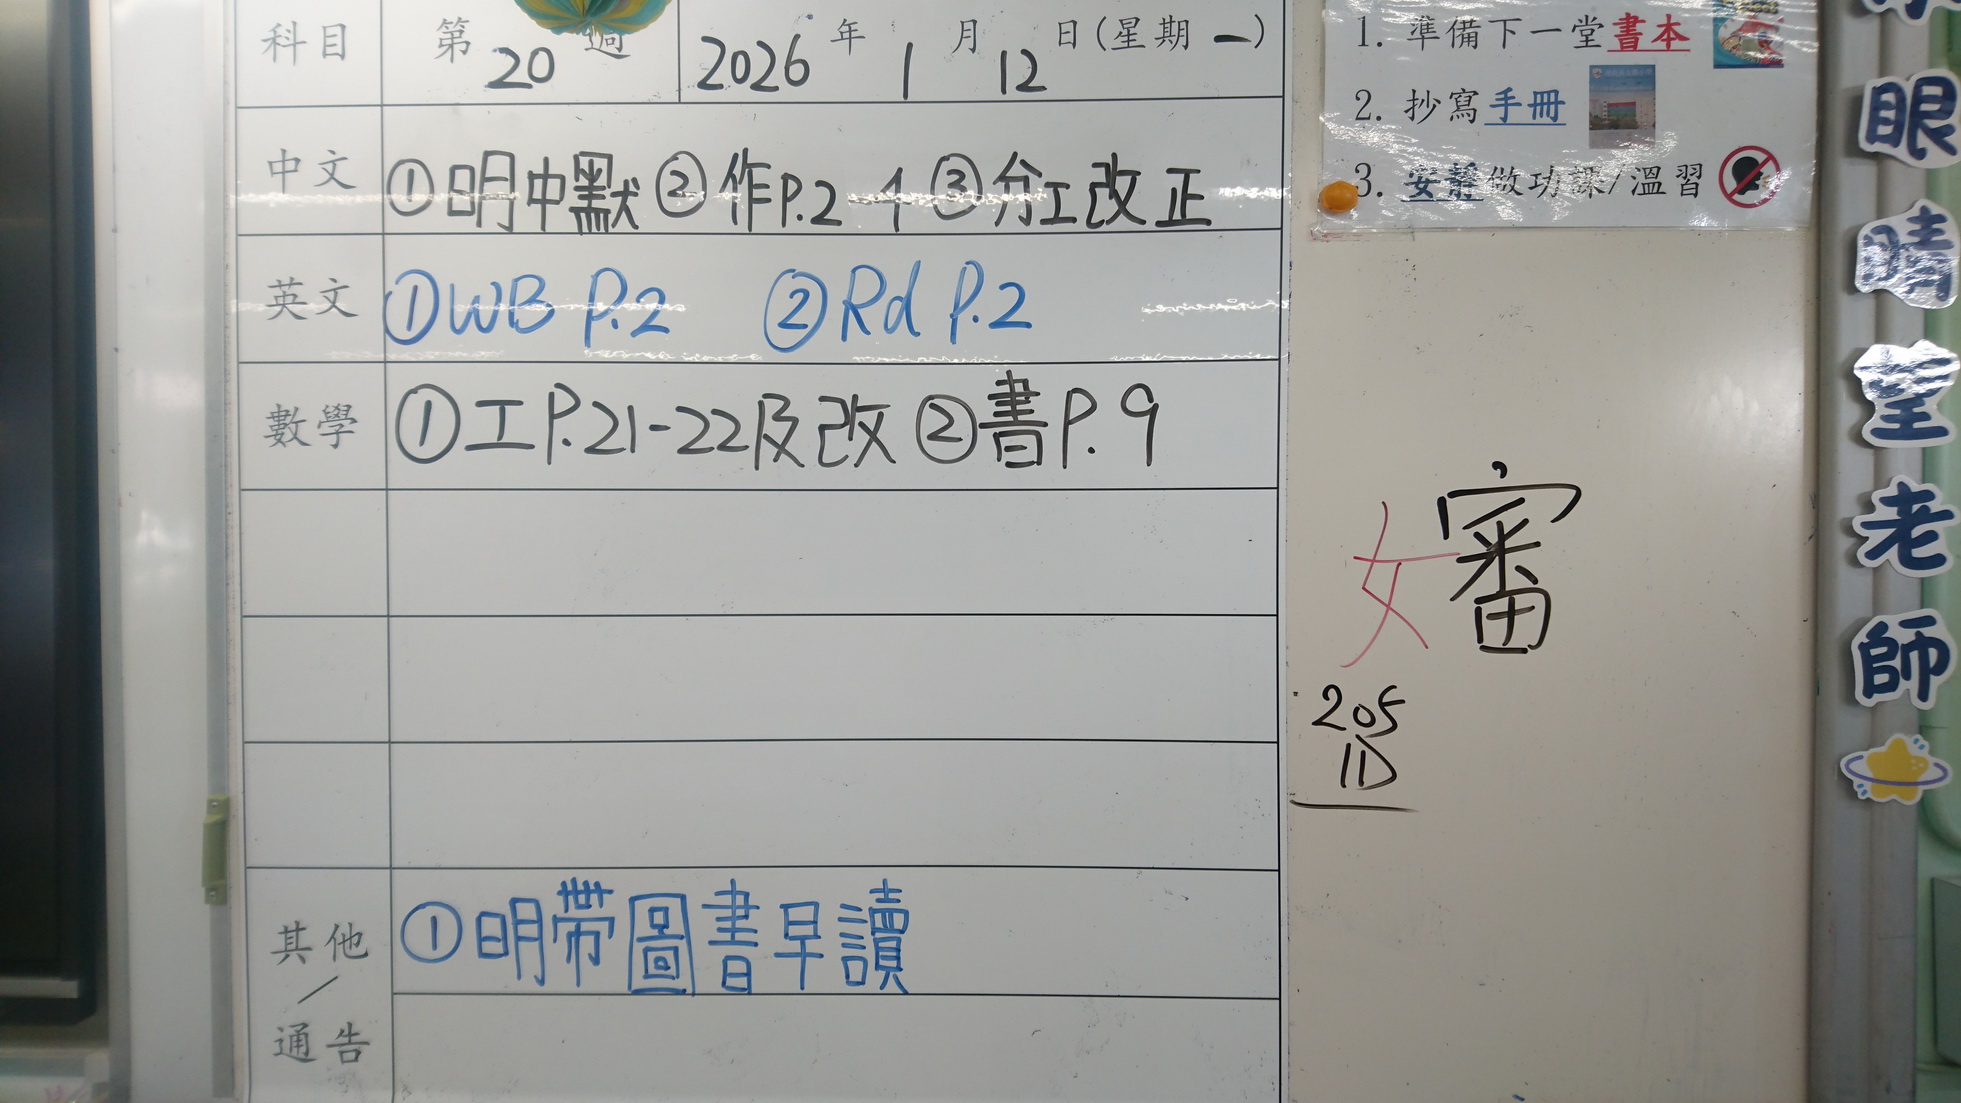 科目 第20週 2026年1月12日(星期一)
中文 ①明中默 ②作P.2 4 ③分工改正
英文 ①WB P.2 ②Rd P.2
數學 ①工P.21-22及改 ②書P.9
其他/通告 ①明帶圖書早讀
1. 準備下一堂書本
2. 抄寫手冊
3. 安靜做功課/溫習
女審
205
1D
眼睛望老師